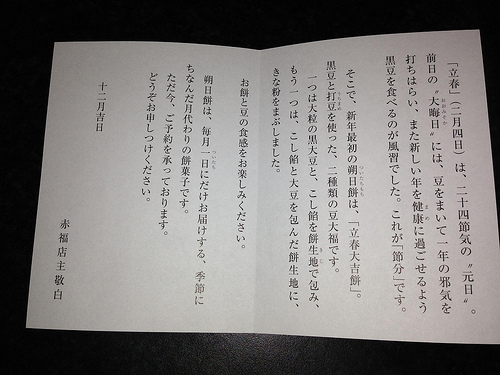 「立春」（二月四日）は、二十四節気の〝元日〟。
前日の〝大晦日〟には、豆をまいて一年の邪気を
打ちはらい、また新しい年を健康に過ごせるよう
黒豆を食べるのが風習でした。これが「節分」です。
そこで、新年最初の朔日餅は、「立春大吉餅」。
黒豆と打豆を使った、二種類の豆大福です。
一つは大粒の黒大豆と、こし餡を餅生地で包み、
もう一つは、こし餡と大豆を包んだ餅生地に、
きな粉をまぶしました。
お餅と豆の食感をお楽しみください。
朔日餅は、毎月一日にだけお届けする、季節に
ちなんだ月代わりの餅菓子です。
ただ今、ご予約を承っております。
どうぞお申しつけください。
十二月吉日
赤福店主敬白